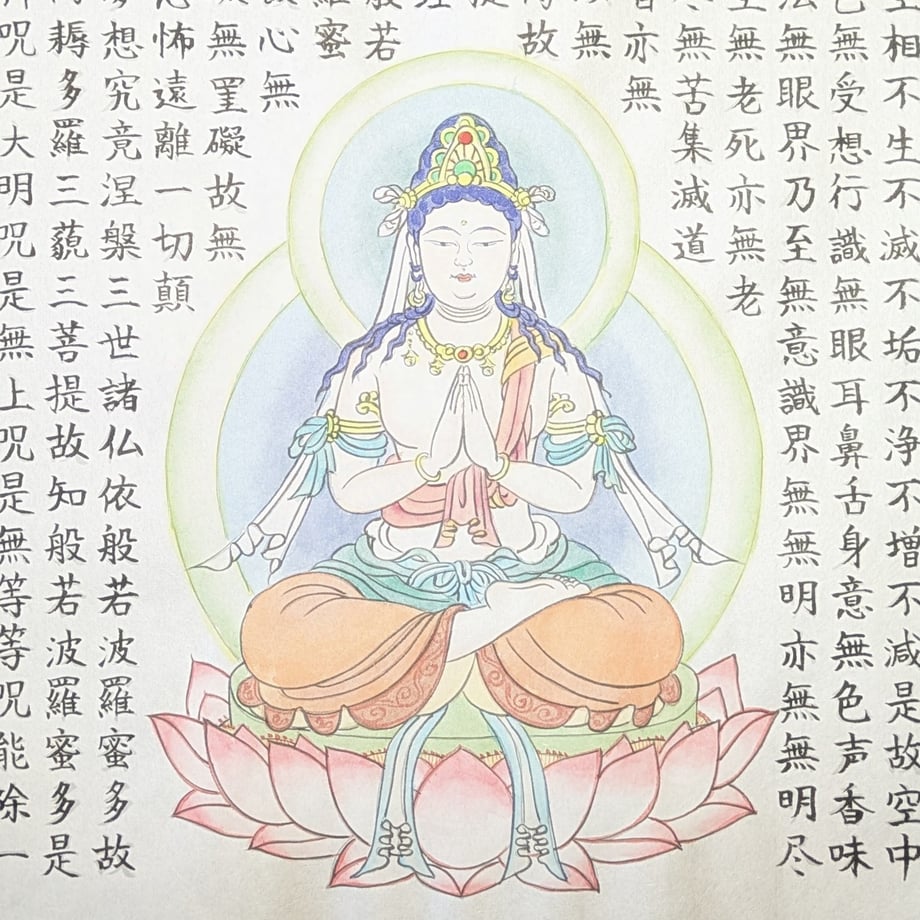 相不生不滅不垢不浄不増不減是故空中
色無受想行識無眼耳鼻舌身意無色声香味
法無眼界乃至無意識界無無明亦無無明尽
無老死亦無老
尽無苦集滅道
亦無
無
故
提
般若
羅蜜
心無
無罣礙故無
怖遠離一切顛
想究竟涅槃三世諸仏依般若波羅蜜多故
耨多羅三藐三菩提故知般若波羅蜜多是
呪是大明呪是無上呪是無等等呪能除一